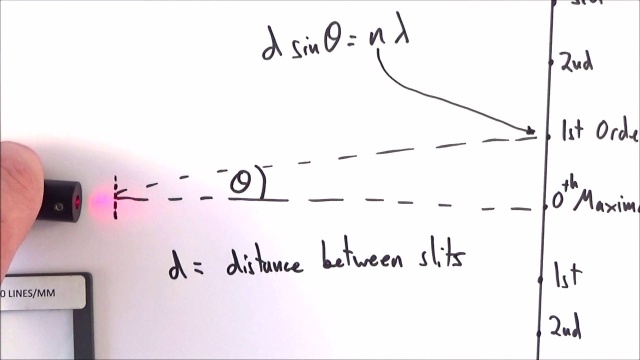 d sinθ = nλ
2nd
1st Orde
θ
0th Maxima
d = distance between slits
1st
0 LINES/MM
2nd